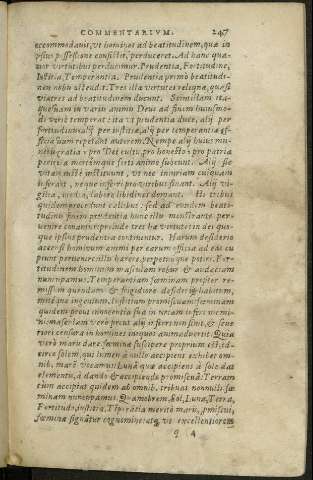 COMMENTARIVM. 247
accommodauit, vt homines ad beatitudinem, quæ in
ipsius possessione consistit, perduceret. Ad hanc qua-
tuor virtutibus perducimur. Prudentia, Fortitudine,
Iustitia, Temperantia. Prudentia primo beatitudi-
nem nobis ostendit. Tres illæ virtutes reliquæ, quasi
viæ tres ad beatitudinem ducunt.
di verò temperat: ita vt prudentia duce, alij per
fortitudinem alij per iustitiam, alij per temperantiam
patiuum repetant autorem. Nempe alij huius mu-
neris gratia: pro Dei cultu, pro honesto: pro patria
pericula mortemque forti animo subeunt. Alij
vitam instituunt, vt nec iniuriam cuiquam
inferant, neque inferri pro viribus sinant. Alij
inedia, labore libidines domant. Hi tribus
quidem procedunt callibus: sed ad eundem beati-
tudinis finem prudentia nunc illis monstrante per-
uenire conantur, proinde tres hæ virtutes in dei quo-
que ipsius prudentia continentur. Harum desiderio
accensi hominum animi per earum officia ad eas cu-
piunt peruenire, illis hærere, perpetuoque potiri. For-
titudinem hominum masculam robur & audaciam
nuncupamus. Temperantiam fœminam propter re-
missum quendam & frigidiorem desiderij habitum,
mite que ingenium. Iustitiam promiscuam. fœminam
quidem prout innocentia sua in
ni: masculam verò prout alij inferre non sinit, & seue
riori censura in homines iniquos animaduertit. Quia
verò maris dare, fœminæ suscipere proprium est: id-
circo solem, qui lumen à nullo accipiens exhibet om-
nib. marē vocamus. Lunā quæ accipiens à sole dat
elementis, à dando & accipiendo promiscuā: Terram
cùm accipiat quidem ab omnib. tribuat nonnullis fœ-
minam nuncupamus. Quamobrem Sol, Luna, Terra,
Fortitudo, iustitia, Tēperātia meritò maris, promiscui,
fœminæ signātur cognominibus, vt excellentiorem
q 4